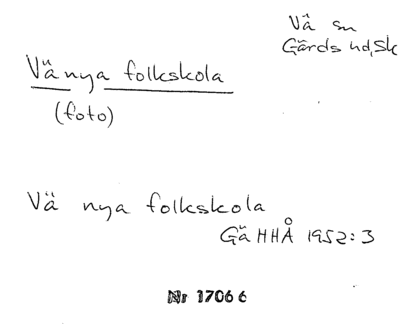 Vä sn
Gärds hd, Sk
Vä nya folkskola
(foto)
Vä nya folkskola
Gä HHÅ 1952:3
Nr 17066